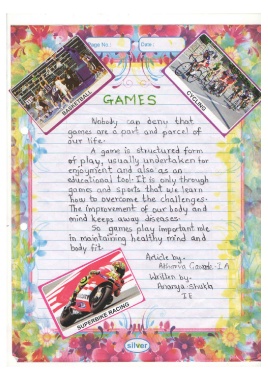 Page No.: Date:
BASKETBALL
CYCLING
GAMES
Nobody can deny that
games are a part and parcel of
our life.
A game is structured form
of play, usually undertaken for
enjoyment and also as an
educational tool. It is only through
games and sports that we learn
how to overcome the challenges.
The improvement of our body and
mind keeps away diseases.
So games play important role
in maintaining healthy mind and
body fit.
Article by-
I A
Written by-
Ananya Shukla
I E
SUPERBIKE RACING
silver